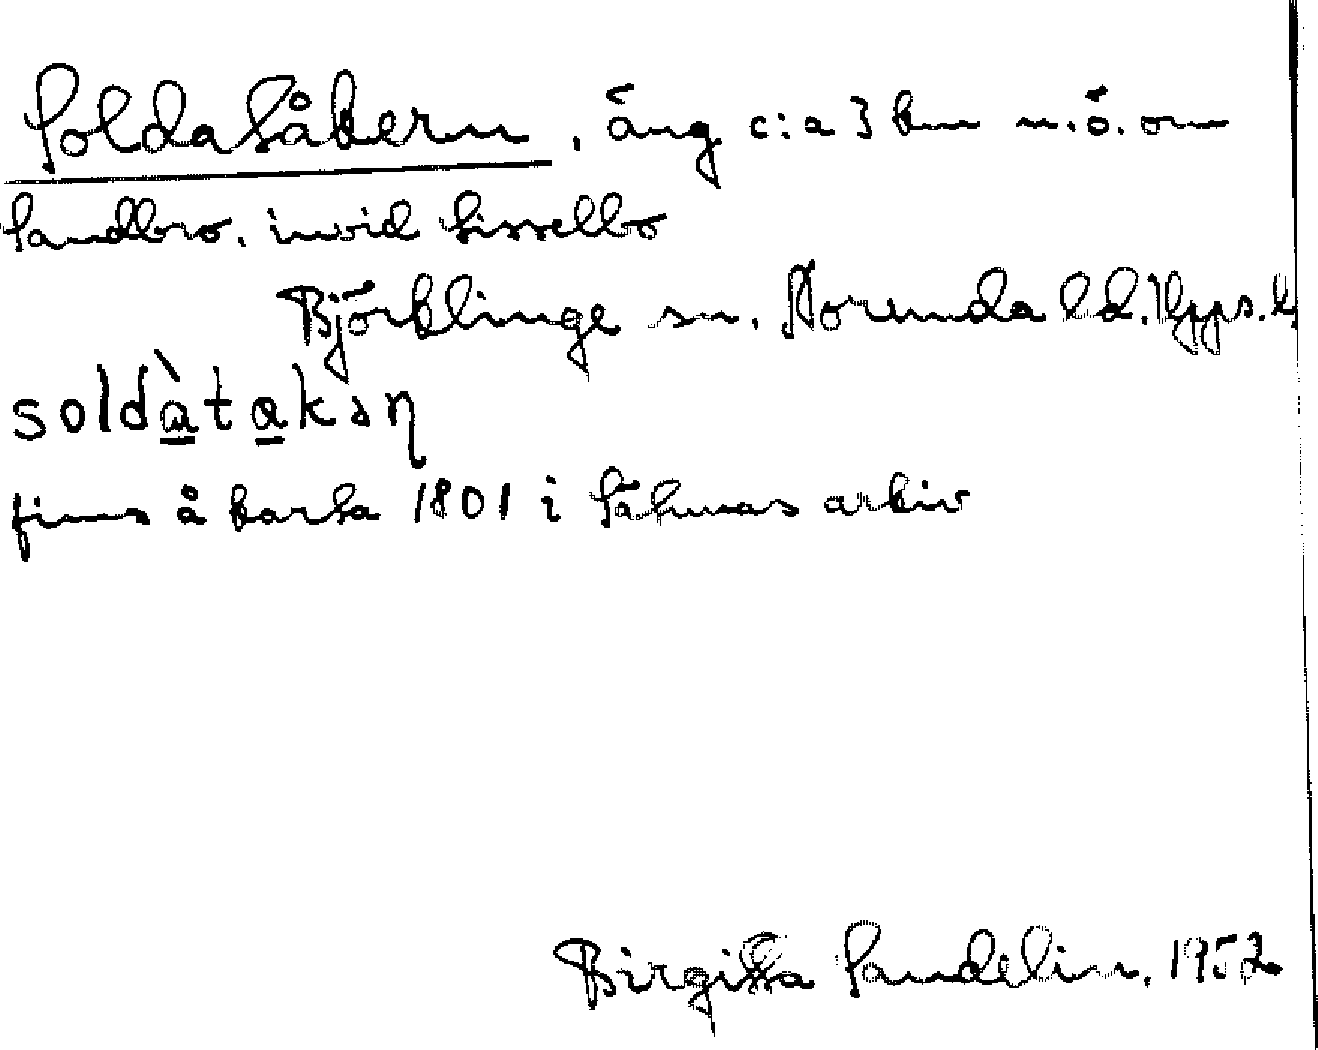 Soldatåkern, äng c:a 3 km n.ö. om
Sandbro, invid Sisselbo
Björklinge sn. Norunda hd. Upps. l.
soldàtakən
finns å karta 1801 i Sätunas arkiv
Birgitta Sandelin, 1952